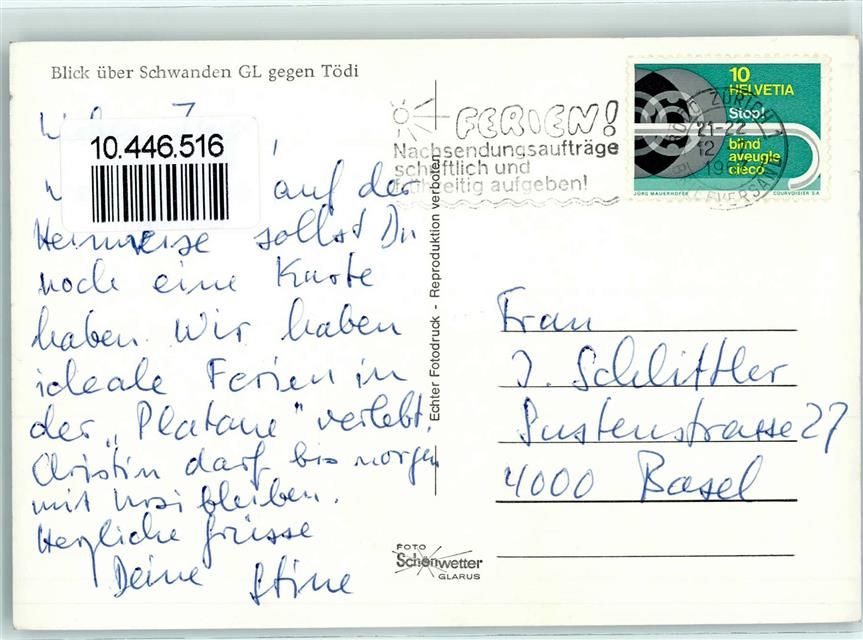 Blick über Schwanden GL gegen Tödi
10.446.516
auf der
Heimreise sollst Du
noch eine Karte
haben. Wir haben
ideale Ferien in
der „Platane" verlebt.
Christin darf bis morgen
mit Ursi bleiben.
Herzliche Grüsse
Deine Stine
Echter Fotodruck - Reproduktion verboten
FERIEN!
Nachsendungsaufträge
schriftlich und
frühzeitig aufgeben!
10
HELVETIA
Stop!
blind
aveugle
cieco
JÖRG MAUERHOFER
COURVOISIER S.A.
ZÜRICH 1
21-22
12
BRIEFVERSAND
Frau
J. Schlittler
Sustenstrasse 27
4000 Basel
FOTO
Schönwetter
GLARUS